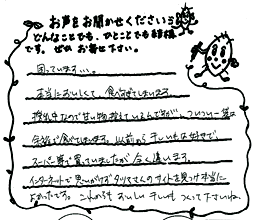 お声をお聞かせください
どんなことでも、ひとことでも結構
です。ぜひ お寄せ下さい。
困っています…。
本当においしくて、食べすぎてしまいます
授乳中なので甘い物 控えているんですが、ついつい一袋
全部 食べてしまいます。以前から干しいもは好きで
スーパー等で買っていましたが 全く違います。
インターネットで 思いがけず タツマさんのサイトを見つけ 本当に
よかったです。これからも おいしい 干しいも つくって下さいね。